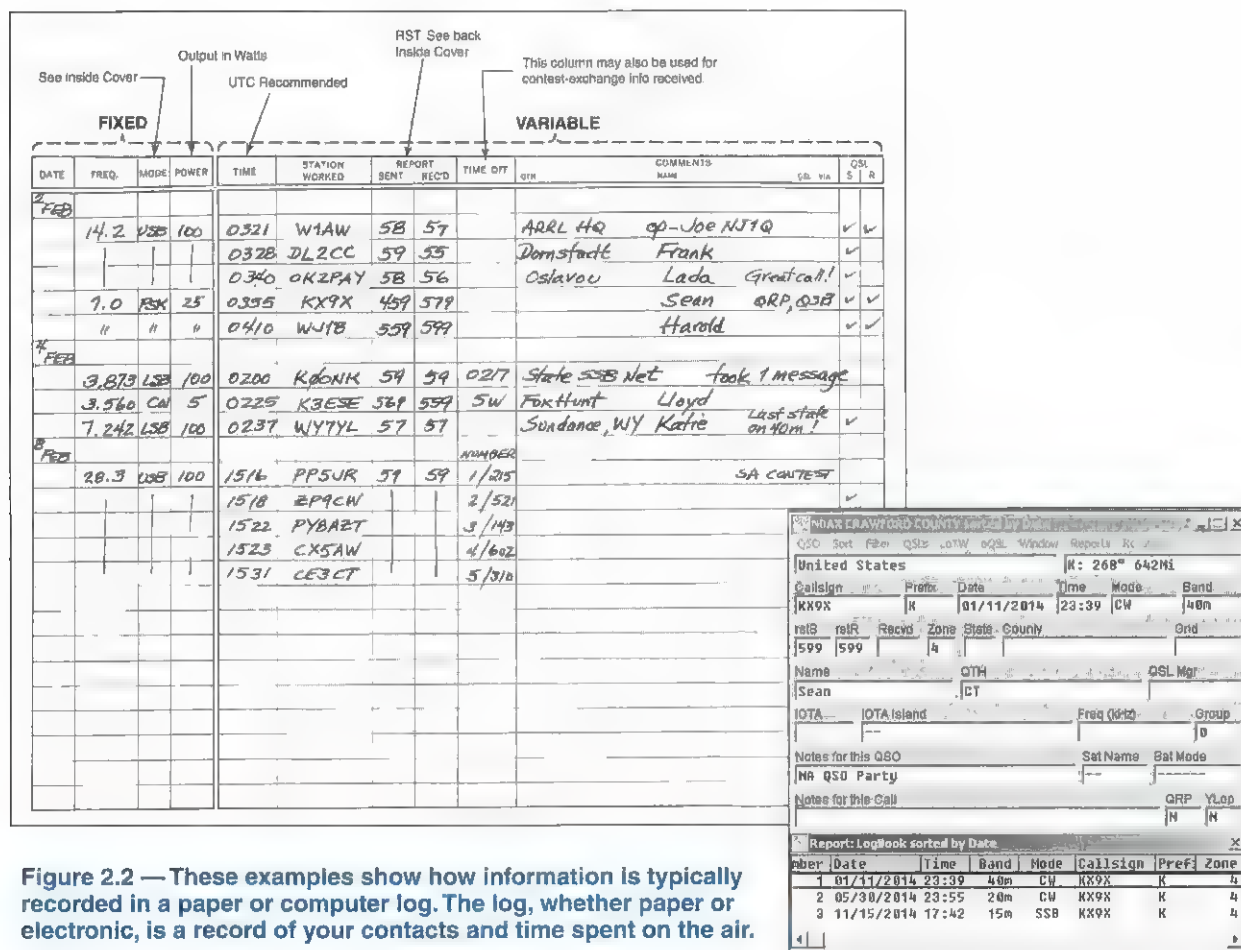 RST See back
Inside Cover
Output in Watts
This column may also be used for
contest-exchange info received.
See Inside Cover
UTC Recommended
FIXED
VARIABLE
DATE FREQ. MODE POWER TIME STATION WORKED REPORT SENT REC'D TIME OFF QTH COMMENTS NAME QSL VIA QSL S R
2 FEB
14.2 USB 100 0321 W1AW 58 57 ARRL HQ op-Joe NJ1Q ✓ ✓
0328 DL2CC 59 55 Frank ✓
0340 OK2PAY 58 56 Oslavou Lada Great call! ✓
7.0 PSK 25 0355 KX9X 459 579 Sean QRP, QSB ✓ ✓
" " " 0410 WJ1B 559 599 Harold ✓ ✓
4 FEB
3.873 LSB 100 0200 KØONK 59 59 0217 State SSB Net took 1 message
3.560 CW 5 0225 K3ESE 569 559 5W FoxHunt Lloyd
7.242 LSB 100 0237 WY7YL 57 57 Sundance, WY Katie Last state on 40m! ✓
8 FEB NUMBER
28.3 USB 100 1516 PP5UR 59 59 1/215 SA CONTEST
1518 ZP9CW 2/521 ✓
1522 3/143
1523 CX5AW 4/602
1531 CE3CT 5/310
N0AX CRAWFORD COUNTY sorted by Date
QSO Sort Filter QSLs LoTW eQSL Window Reports
United States K: 268° 642Mi
Callsign Prefix Date Time Mode Band
KX9X K 01/11/2014 23:39 CW 40m
rstS rstR Recvd Zone State County Grid
599 599 4
Name QTH QSL Mgr
Sean CT
IOTA IOTA Island Freq (kHz) Group
-- 0
Notes for this QSO Sat Name Sat Mode
NA QSO Party -- ------
Notes for this Call QRP YLop
N N
Report: LogBook sorted by Date
mber Date Time Band Mode Callsign Pref Zone
1 01/11/2014 23:39 40m CW KX9X K 4
2 05/30/2014 23:55 20m CW KX9X K 4
3 11/15/2014 17:42 15m SSB KX9X K 4
Figure 2.2 — These examples show how information is typically
recorded in a paper or computer log. The log, whether paper or
electronic, is a record of your contacts and time spent on the air.